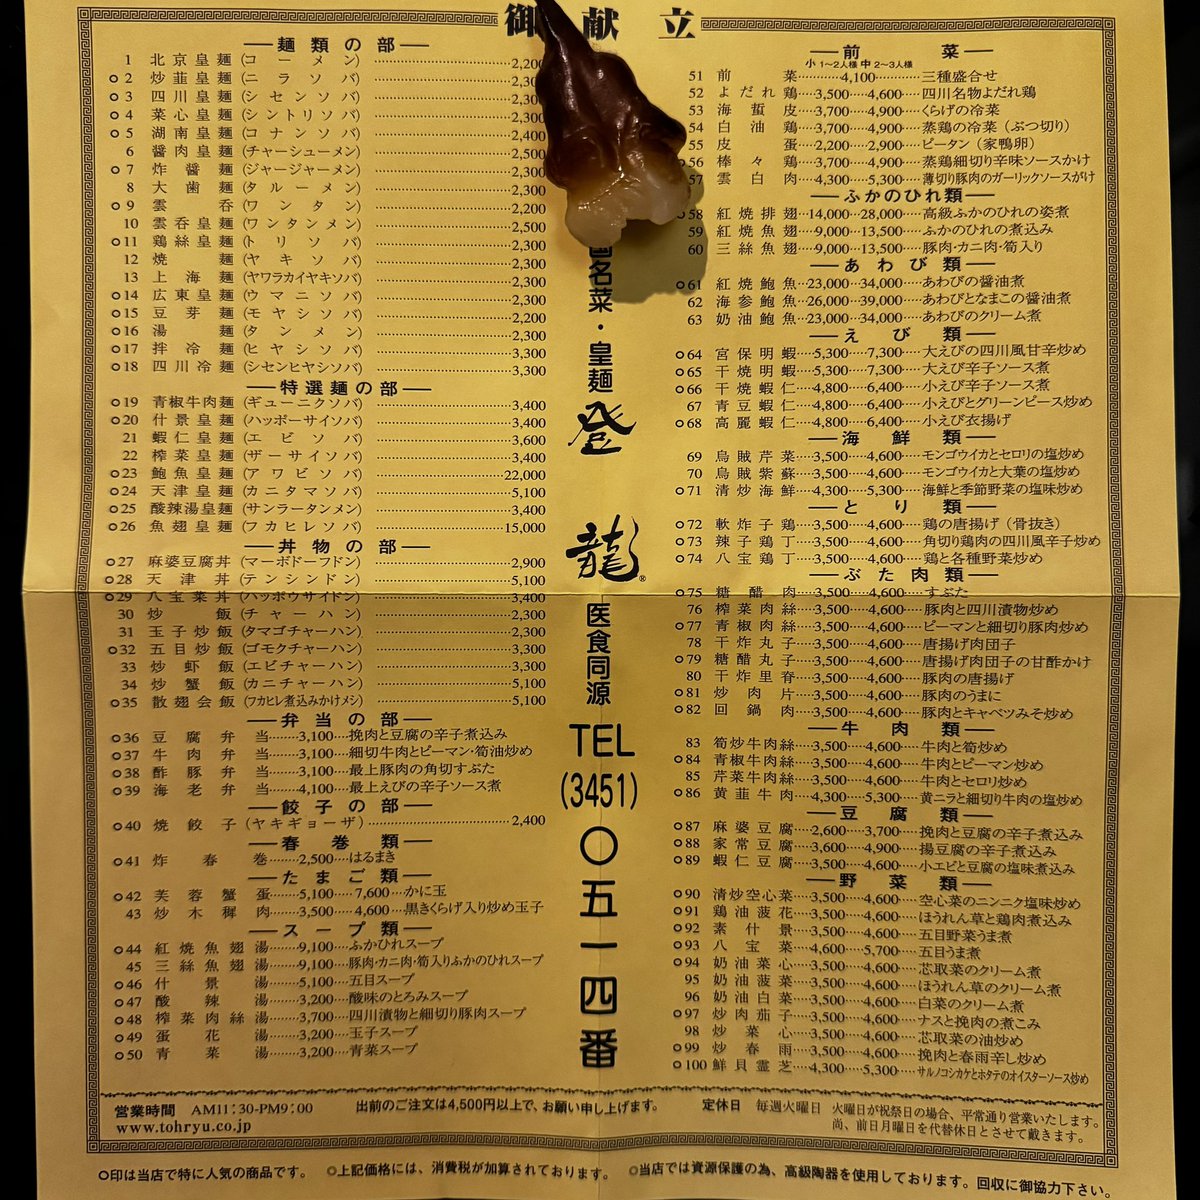 御献立
―麺類の部―
1 北京皇麺(コーメン)……2,200
○2 炒韮皇麺(ニラソバ)……2,300
○3 四川皇麺(シセンソバ)……2,300
○4 菜心皇麺(シントリソバ)……2,300
○5 湖南皇麺(コナンソバ)……2,400
6 醤肉皇麺(チャーシューメン)……2,500
○7 炸醤麺(ジャージャーメン)……2,300
8 大歯麺(タルーメン)……2,300
○9 雲呑(ワンタン)……2,200
10 雲呑皇麺(ワンタンメン)……2,500
○11 鶏絲皇麺(トリソバ)……2,300
12 焼麺(ヤキソバ)……2,300
13 上海麺(ヤワラカイヤキソバ)……2,300
○14 広東皇麺(ウマニソバ)……2,300
○15 豆芽麺(モヤシソバ)……2,200
○16 湯麺(タンメン)……2,300
○17 拌冷麺(ヒヤシソバ)……3,300
○18 四川冷麺(シセンヒヤシソバ)……3,300
―特選麺の部―
○19 青椒牛肉麺(ギューニクソバ)……3,400
○20 什景皇麺(ハッポーサイソバ)……3,400
21 蝦仁皇麺(エビソバ)……3,600
22 榨菜皇麺(ザーサイソバ)……3,400
○23 鮑魚皇麺(アワビソバ)……22,000
○24 天津皇麺(カニタマソバ)……5,100
○25 酸辣湯皇麺(サンラータンメン)……3,400
○26 魚翅皇麺(フカヒレソバ)……15,000
―丼物の部―
○27 麻婆豆腐丼(マーボドーフドン)……2,900
○28 天津丼(テンシンドン)……5,100
○29 八宝菜丼(ハッポウサイドン)……3,400
30 炒飯(チャーハン)……2,300
31 玉子炒飯(タマゴチャーハン)……2,300
○32 五目炒飯(ゴモクチャーハン)……3,300
33 炒蝦飯(エビチャーハン)……3,300
34 炒蟹飯(カニチャーハン)……5,100
○35 散翅会飯(フカヒレ煮込みかけメシ)……5,100
―弁当の部―
○36 豆腐弁当……3,100……挽肉と豆腐の辛子煮込み
○37 牛肉弁当……3,100……細切牛肉とピーマン・筍油炒め
○38 酢豚弁当……3,100……最上豚肉の角切すぶた
○39 海老弁当……4,100……最上えびの辛子ソース煮
―餃子の部―
○40 焼餃子(ヤキギョーザ)……2,400
―春巻類―
○41 炸春巻……2,500……はるまき
―たまご類―
○42 芙蓉蟹蛋……5,100……7,600……かに玉
43 炒木穉肉……3,500……4,600……黒きくらげ入り炒め玉子
―スープ類―
○44 紅焼魚翅湯……9,100……ふかひれスープ
45 三絲魚翅湯……9,100……豚肉・カニ肉・筍入りふかのひれスープ
○46 什景湯……5,100……五目スープ
○47 酸辣湯……3,200……酸味のとろみスープ
○48 榨菜肉絲湯……3,700……四川漬物と細切り豚肉スープ
○49 蛋花湯……3,200……玉子スープ
○50 青菜湯……3,200……青菜スープ
国名菜・皇麺
登龍®
医食同源
TEL
(3451)
〇五一四番
―前菜―
小 1～2人様 中 2～3人様
51 前菜……4,100……三種盛合せ
52 よだれ鶏……3,500……4,600……四川名物よだれ鶏
53 海蜇皮……3,700……4,900……くらげの冷菜
54 白油鶏……3,700……4,900……蒸鶏の冷菜(ぶつ切り)
55 皮蛋……2,200……2,900……ピータン(家鴨卵)
○56 棒々鶏……3,700……4,900……蒸鶏細切り辛味ソースかけ
57 雲白肉……4,300……5,300……薄切り豚肉のガーリックソースがけ
―ふかのひれ類―
○58 紅焼排翅…14,000…28,000……高級ふかのひれの姿煮
59 紅焼魚翅……9,000…13,500……ふかのひれの煮込み
60 三絲魚翅……9,000…13,500……豚肉・カニ肉・筍入り
―あわび類―
○61 紅焼鮑魚…23,000…34,000……あわびの醤油煮
62 海参鮑魚…26,000…39,000……あわびとなまこの醤油煮
63 奶油鮑魚…23,000…34,000……あわびのクリーム煮
―えび類―
○64 宮保明蝦……5,300……7,300……大えびの四川風甘辛炒め
○65 干焼明蝦……5,300……7,300……大えび辛子ソース煮
○66 干焼蝦仁……4,800……6,400……小えび辛子ソース煮
67 青豆蝦仁……4,800……6,400……小えびとグリーンピース炒め
○68 高麗蝦仁……4,800……6,400……小えび衣揚げ
―海鮮類―
69 烏賊芹菜……3,500……4,600……モンゴウイカとセロリの塩炒め
70 烏賊紫蘇……3,500……4,600……モンゴウイカと大葉の塩炒め
○71 清炒海鮮……4,300……5,300……海鮮と季節野菜の塩味炒め
―とり類―
○72 軟炸子鶏……3,500……4,600……鶏の唐揚げ(骨抜き)
○73 辣子鶏丁……3,500……4,600……角切り鶏肉の四川風辛子炒め
○74 八宝鶏丁……3,500……4,600……鶏と各種野菜炒め
―ぶた肉類―
○75 糖醋肉……3,500……4,600……すぶた
76 榨菜肉絲……3,500……4,600……豚肉と四川漬物炒め
○77 青椒肉絲……3,500……4,600……ピーマンと細切り豚肉炒め
78 干炸丸子……3,500……4,600……唐揚げ肉団子
○79 糖醋丸子……3,500……4,600……唐揚げ肉団子の甘酢かけ
80 干炸里脊……3,500……4,600……豚肉の唐揚げ
○81 炒肉片……3,500……4,600……豚肉のうまに
○82 回鍋肉……3,500……4,600……豚肉とキャベツみそ炒め
―牛肉類―
83 筍炒牛肉絲……3,500……4,600……牛肉と筍炒め
○84 青椒牛肉絲……3,500……4,600……牛肉とピーマン炒め
85 芹菜牛肉絲……3,500……4,600……牛肉とセロリ炒め
○86 黄韮牛肉……4,300……5,300……黄ニラと細切り牛肉の塩炒め
―豆腐類―
○87 麻婆豆腐……2,600……3,700……挽肉と豆腐の辛子煮込み
○88 家常豆腐……3,600……4,900……揚豆腐の辛子煮込み
○89 蝦仁豆腐……3,500……4,600……小エビと豆腐の塩味煮込み
―野菜類―
○90 清炒空心菜……3,500……4,600……空心菜のニンニク塩味炒め
○91 鶏油菠花……3,500……4,600……ほうれん草と鶏肉煮込み
○92 素什景……3,500……4,600……五目野菜うま煮
○93 八宝菜……4,600……5,700……五目うま煮
○94 奶油菜心……3,500……4,600……芯取菜のクリーム煮
95 奶油菠菜……3,500……4,600……ほうれん草のクリーム煮
96 奶油白菜……3,500……4,600……白菜のクリーム煮
○97 炒肉茄子……3,500……4,600……ナスと挽肉の煮こみ
98 炒菜心……3,500……4,600……芯取菜の油炒め
○99 炒春雨……3,500……4,600……挽肉と春雨辛し炒め
○100 鮮貝霊芝……4,300……5,300……サルノコシカケとホタテのオイスターソース炒め
営業時間 AM11:30-PM9:00 出前のご注文は4,500円以上で、お願い申し上げます。 定休日 毎週火曜日 火曜日が祝祭日の場合、平常通り営業いたします。
www.tohryu.co.jp 尚、前日月曜日を代替休日とさせて戴きます。
○印は当店で特に人気の商品です。 ○上記価格には、消費税が加算されております。 ○当店では資源保護の為、高級陶器を使用しております。回収に御協力下さい。